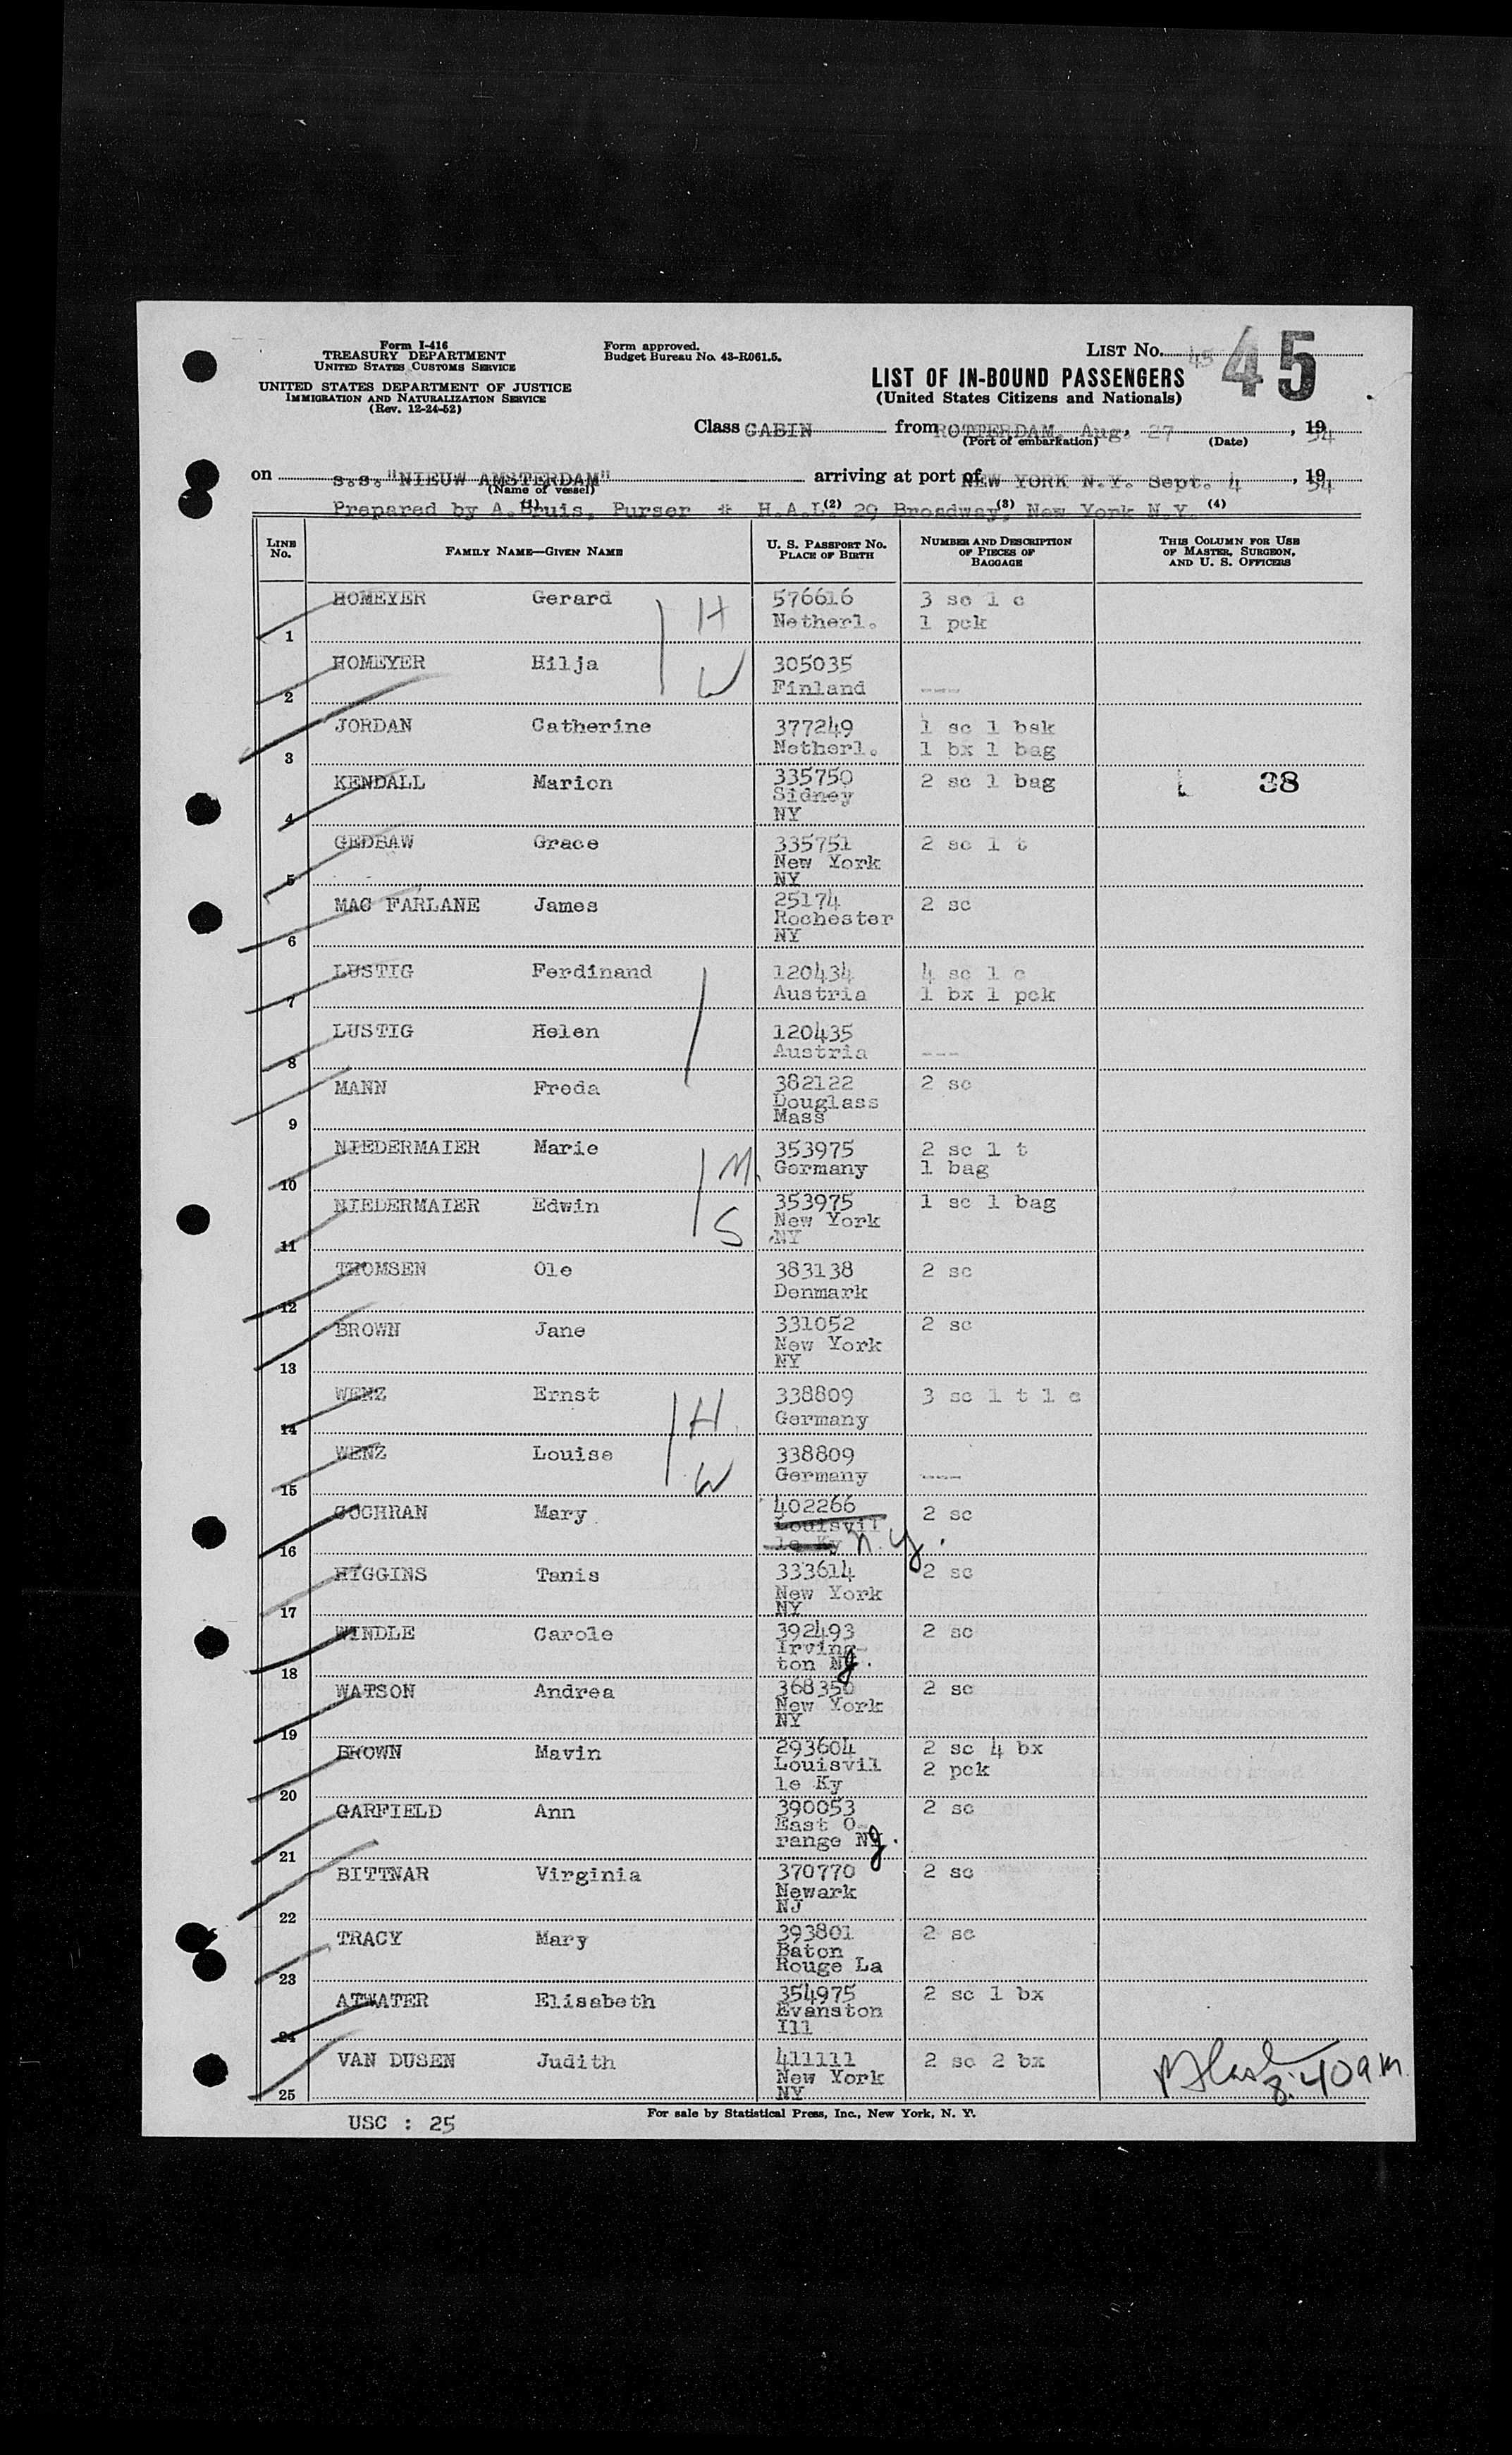 Form I-416
TREASURY DEPARTMENT
UNITED STATES CUSTOMS SERVICE
UNITED STATES DEPARTMENT OF JUSTICE
IMMIGRATION AND NATURALIZATION SERVICE
(Rev. 12-24-52)
Form approved.
Budget Bureau No. 43-R061.5.
LIST No. 45 45
LIST OF IN-BOUND PASSENGERS
(United States Citizens and Nationals)
Class CABIN from ROTTERDAM, Aug. 27, 1954
(Port of embarkation) (Date)
on s.s. "NIEUW AMSTERDAM" arriving at port of NEW YORK N.Y. Sept. 4, 1954
(Name of vessel)
Prepared by A. Bruis, Purser * H.A.L. 29 Broadway, New York N.Y.
(1) (2) (3) (4)
LINE No. FAMILY NAME—GIVEN NAME U. S. PASSPORT No. PLACE OF BIRTH NUMBER AND DESCRIPTION OF PIECES OF BAGGAGE THIS COLUMN FOR USE OF MASTER, SURGEON, AND U. S. OFFICERS
1 HOMEYER Gerard H 576616 3 sc 1 c
Netherl. 1 pck
2 HOMEYER Hilja W 305035
Finland ----
3 JORDAN Catherine 377249 1 sc 1 bsk
Netherl. 1 bx 1 bag
4 KENDALL Marion 335750 2 sc 1 bag 38
Sidney
NY
5 GEDRAW Grace 335751 2 sc 1 t
New York
NY
6 MAC FARLANE James 25174 2 sc
Rochester
NY
7 LUSTIG Ferdinand 120434 4 sc 1 c
Austria 1 bx 1 pck
8 LUSTIG Helen 120435
Austria ---
9 MANN Freda 382122 2 sc
Douglass
Mass
10 NIEDERMAIER Marie M. 353975 2 sc 1 t
Germany 1 bag
11 NIEDERMAIER Edwin S 353975 1 sc 1 bag
New York
NY
12 THOMSEN Ole 383138 2 sc
Denmark
13 BROWN Jane 331052 2 sc
New York
NY
14 WENZ Ernst H. 338809 3 sc 1 t 1 c
Germany
15 WENZ Louise W 338809
Germany ----
16 COCHRAN Mary 402266 2 sc
Louisvil
le Ky N.Y.
17 HIGGINS Tanis 333614 2 sc
New York
NY
18 WINDLE Carole 392493 2 sc
Irving-
ton NJ.
19 WATSON Andrea 368350 2 sc
New York
NY
20 BROWN Mavin 293604 2 sc 4 bx
Louisvil 2 pck
le Ky
21 GARFIELD Ann 390053 2 sc
East O-
range NJ.
22 BITTNAR Virginia 370770 2 sc
Newark
NJ
23 TRACY Mary 393801 2 sc
Baton
Rouge La
24 ATWATER Elisabeth 354975 2 sc 1 bx
Evanston
Ill
25 VAN DUSEN Judith 411111 2 sc 2 bx
New York
NY
8:40 a.m.
USC : 25
For sale by Statistical Press, Inc., New York, N. Y.